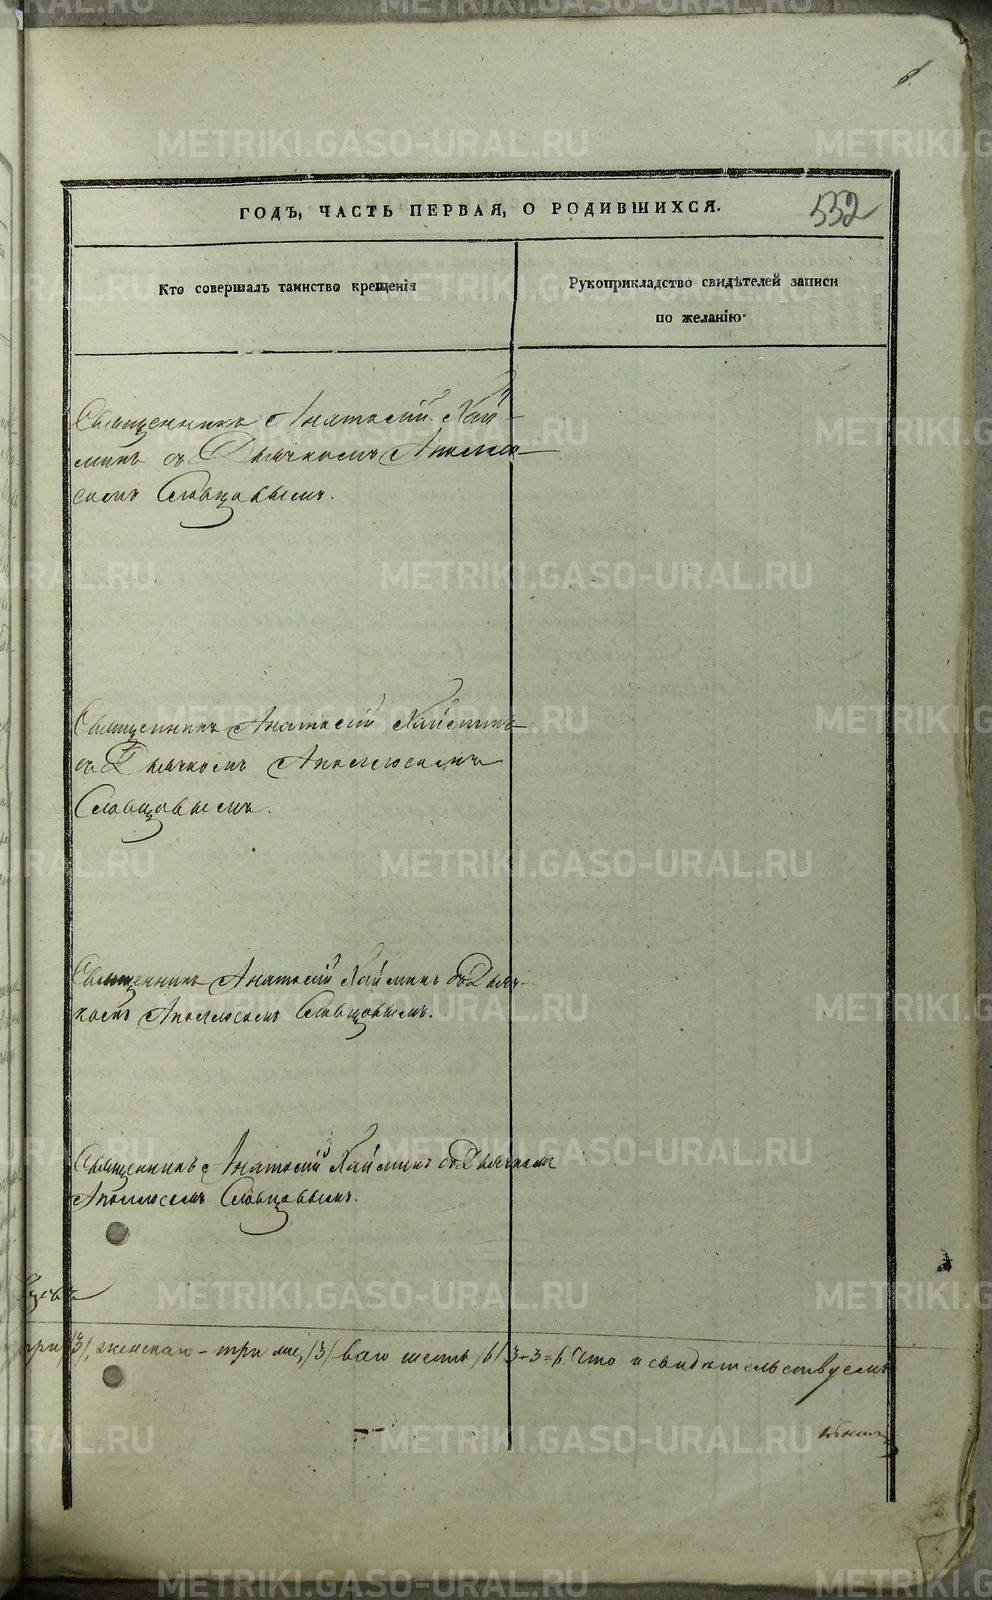 6.
ГОДЪ, ЧАСТЬ ПЕРВАЯ, О РОДИВШИХСЯ.
552
Кто совершалъ таинство крещенія
Рукоприкладство свидѣтелей записи
по желанію.
Священникъ Анатолій Хай-
минъ съ Дьячкомъ Аполло-
сомъ Словцовымъ.
Священникъ Анатолій Хайминъ
съ Дьячкомъ Аполлосомъ
Словцовымъ.
Священникъ Анатолій Хайминъ съ Дьяч-
комъ Аполлосомъ Словцовымъ.
Священникъ Анатолій Хайминъ съ Дьячкомъ
Аполлосомъ Словцовымъ.
при /3/, женскаго - три /3/ всего шесть /6/ 3+3=6. Что и свидѣтельствуемъ
METRIKI.GASO-URAL.RU